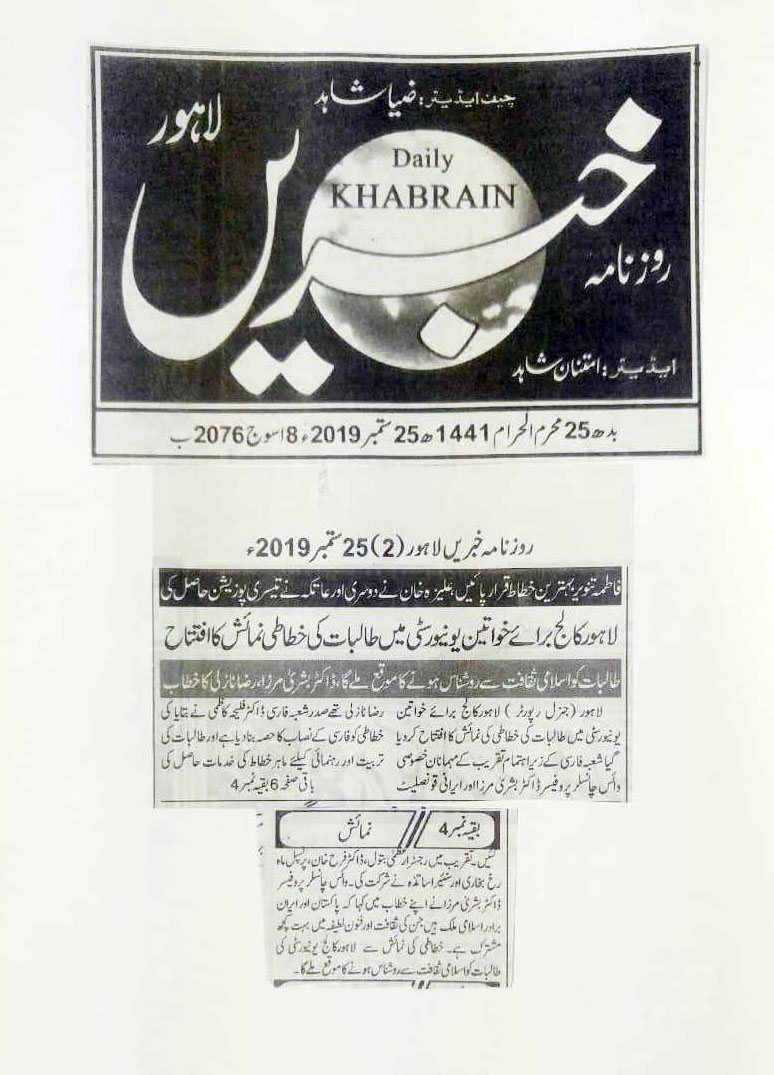 چیف ایڈیٹر: ضیا شاہد
لاہور
Daily
KHABRAIN
خبریں
روزنامہ
ایڈیٹر: امتنان شاہد
بدھ 25 محرم الحرام 1441ھ 25 ستمبر 2019ء 8 اسوج 2076 ب
روزنامہ خبریں لاہور (2) 25 ستمبر 2019ء
فاطمہ تنویر بہترین خطاط قرار پائیں، علیزہ خان نے دوسری اور عاتکہ نے تیسری پوزیشن حاصل کی
لاہور کالج برائے خواتین یونیورسٹی میں طالبات کی خطاطی نمائش کا افتتاح
طالبات کو اسلامی ثقافت سے روشناس ہونے کا موقع ملے گا، ڈاکٹر بشریٰ مرزا، رضا نازلی کا خطاب
لاہور (جنرل رپورٹر) لاہور کالج برائے خواتین
یونیورسٹی میں طالبات کی خطاطی کی نمائش کا افتتاح کر دیا
گیا شعبہ فارسی کے زیر اہتمام تقریب کے مہمانان خصوصی
وائس چانسلر پروفیسر ڈاکٹر بشریٰ مرزا اور ایرانی قونصلیٹ
رضا نازلی تھے صدر شعبہ فارسی ڈاکٹر فلیحہ کاظمی نے بتایا کی
خطاطی کو فارسی کے نصاب کا حصہ بنا دیا ہے اور طالبات کی
تربیت اور رہنمائی کیلئے ماہر خطاط کی خدمات حاصل کی
باقی صفحہ 6 بقیہ نمبر 4
بقیہ نمبر 4 نمائش
گئیں۔ تقریب میں رجسٹرار عظمیٰ بتول، ڈاکٹر فرح خان، پرنسپل ماہ
رخ بخاری اور سنئیر اساتذہ نے شرکت کی۔ وائس چانسلر پروفیسر
ڈاکٹر بشریٰ مرزا نے اپنے خطاب میں کہا کہ پاکستان اور ایران
برادر اسلامی ملک ہیں جن کی ثقافت اور فنون لطیفہ میں بہت کچھ
مشترک ہے۔ خطاطی کی نمائش سے لاہور کالج یونیورسٹی کی
طالبات کو اسلامی ثقافت سے روشناس ہونے کا موقع ملے گا۔